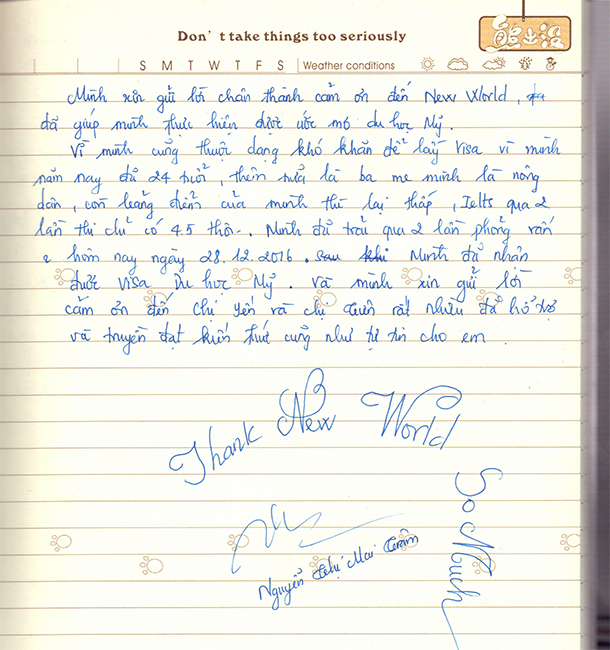 Don't take things too seriously
S M T W T F S Weather conditions
Mình xin gửi lời chân thành cảm ơn đến New World,
đã giúp mình thực hiện được ước mơ du học Mỹ.
Vì mình cũng thuộc dạng khó khăn để lấy Visa vì mình
năm nay đủ 24 tuổi, thêm nữa là ba mẹ mình là nông
dân, còn bảng điểm của mình thì lại thấp, Ielts qua 2
lần thi chỉ có 4.5 thôi. Mình đã trải qua 2 lần phỏng vấn
hôm nay ngày 28.12.2016. sau khi Mình đã nhận
được Visa Du học Mỹ. Và mình xin gửi lời
cảm ơn đến Chị Yến và chị rất nhiều đã hỗ trợ
và truyền đạt kiến thức cũng như tự tin cho em.
Thank New World
So Much
Nguyễn Thị Mai Trâm